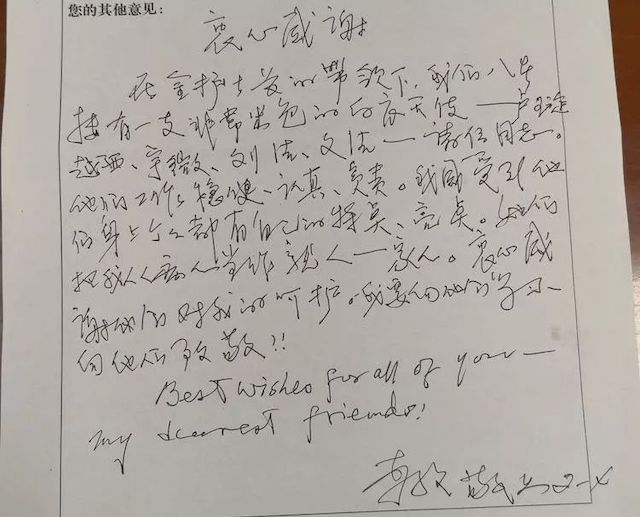 您的其他意见:
衷心感谢
在金护士长的带领下,我们八年
拥有一支非常出色的白衣天使——卢
越西、宁微、刘洁、文洁一诸位同志。
他们工作稳健、认真、负责。我感受到他
们身上个个都有自己的特点、亮点。她们
把我们病人当作亲人一家人。衷心感
谢他们对我的呵护。我要向他们学习、
向他们致敬!!
Best wishes for all of you—
my dearest friends!
李 敬上